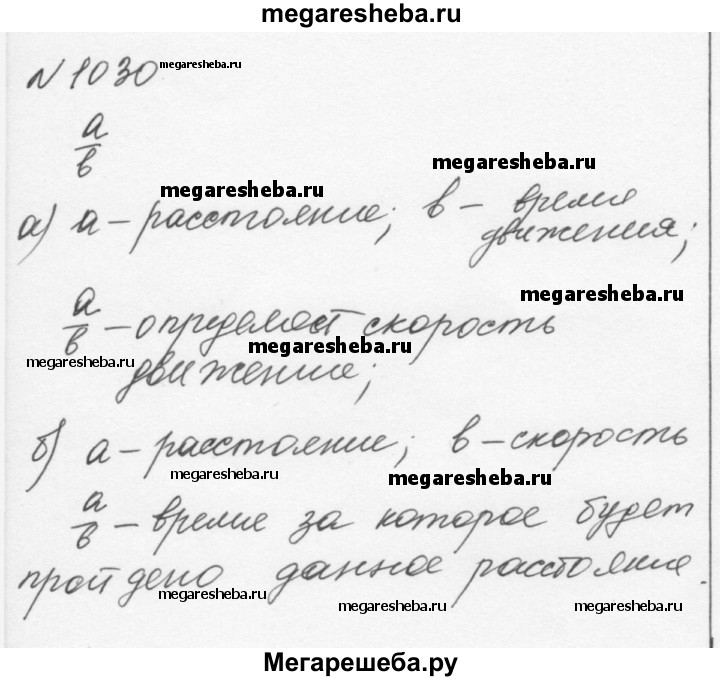 megaresheba.ru
№ 1030 megaresheba.ru
a
в megaresheba.ru
megaresheba.ru
а) a – расстояние; в – время
движения;
a megaresheba.ru
в – определяет скорость
megaresheba.ru megaresheba.ru
движение;
б) a – расстояние; в – скорость
megaresheba.ru megaresheba.ru
a
в – время за которое будет
пройдено данное расстояние.
megaresheba.ru megaresheba.ru megaresheba.ru
Мегарешеба.ру